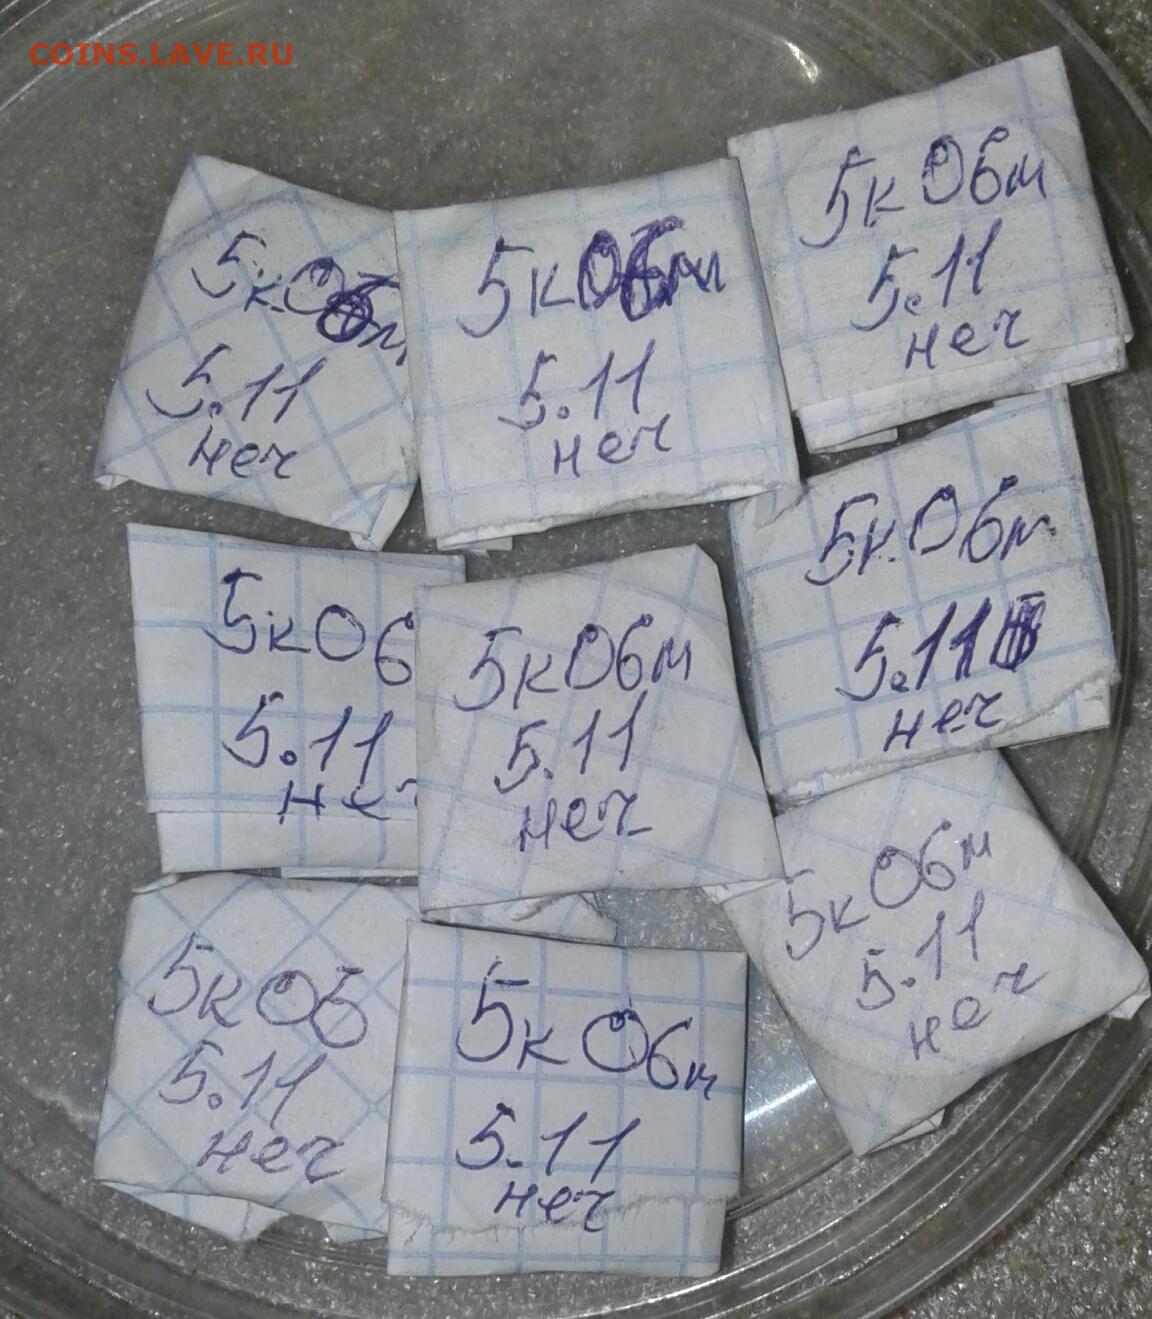 COINS.LAVE.RU
5к06м
5.11
неч
5к06м
5.11
неч
5к06м
5.11
неч
5к06
5.11
не
5к06м
5.11
неч
5к06м
5.11
неч
5к06
5.11
неч
5к06м
5.11
неч
5к06м
5.11
неч